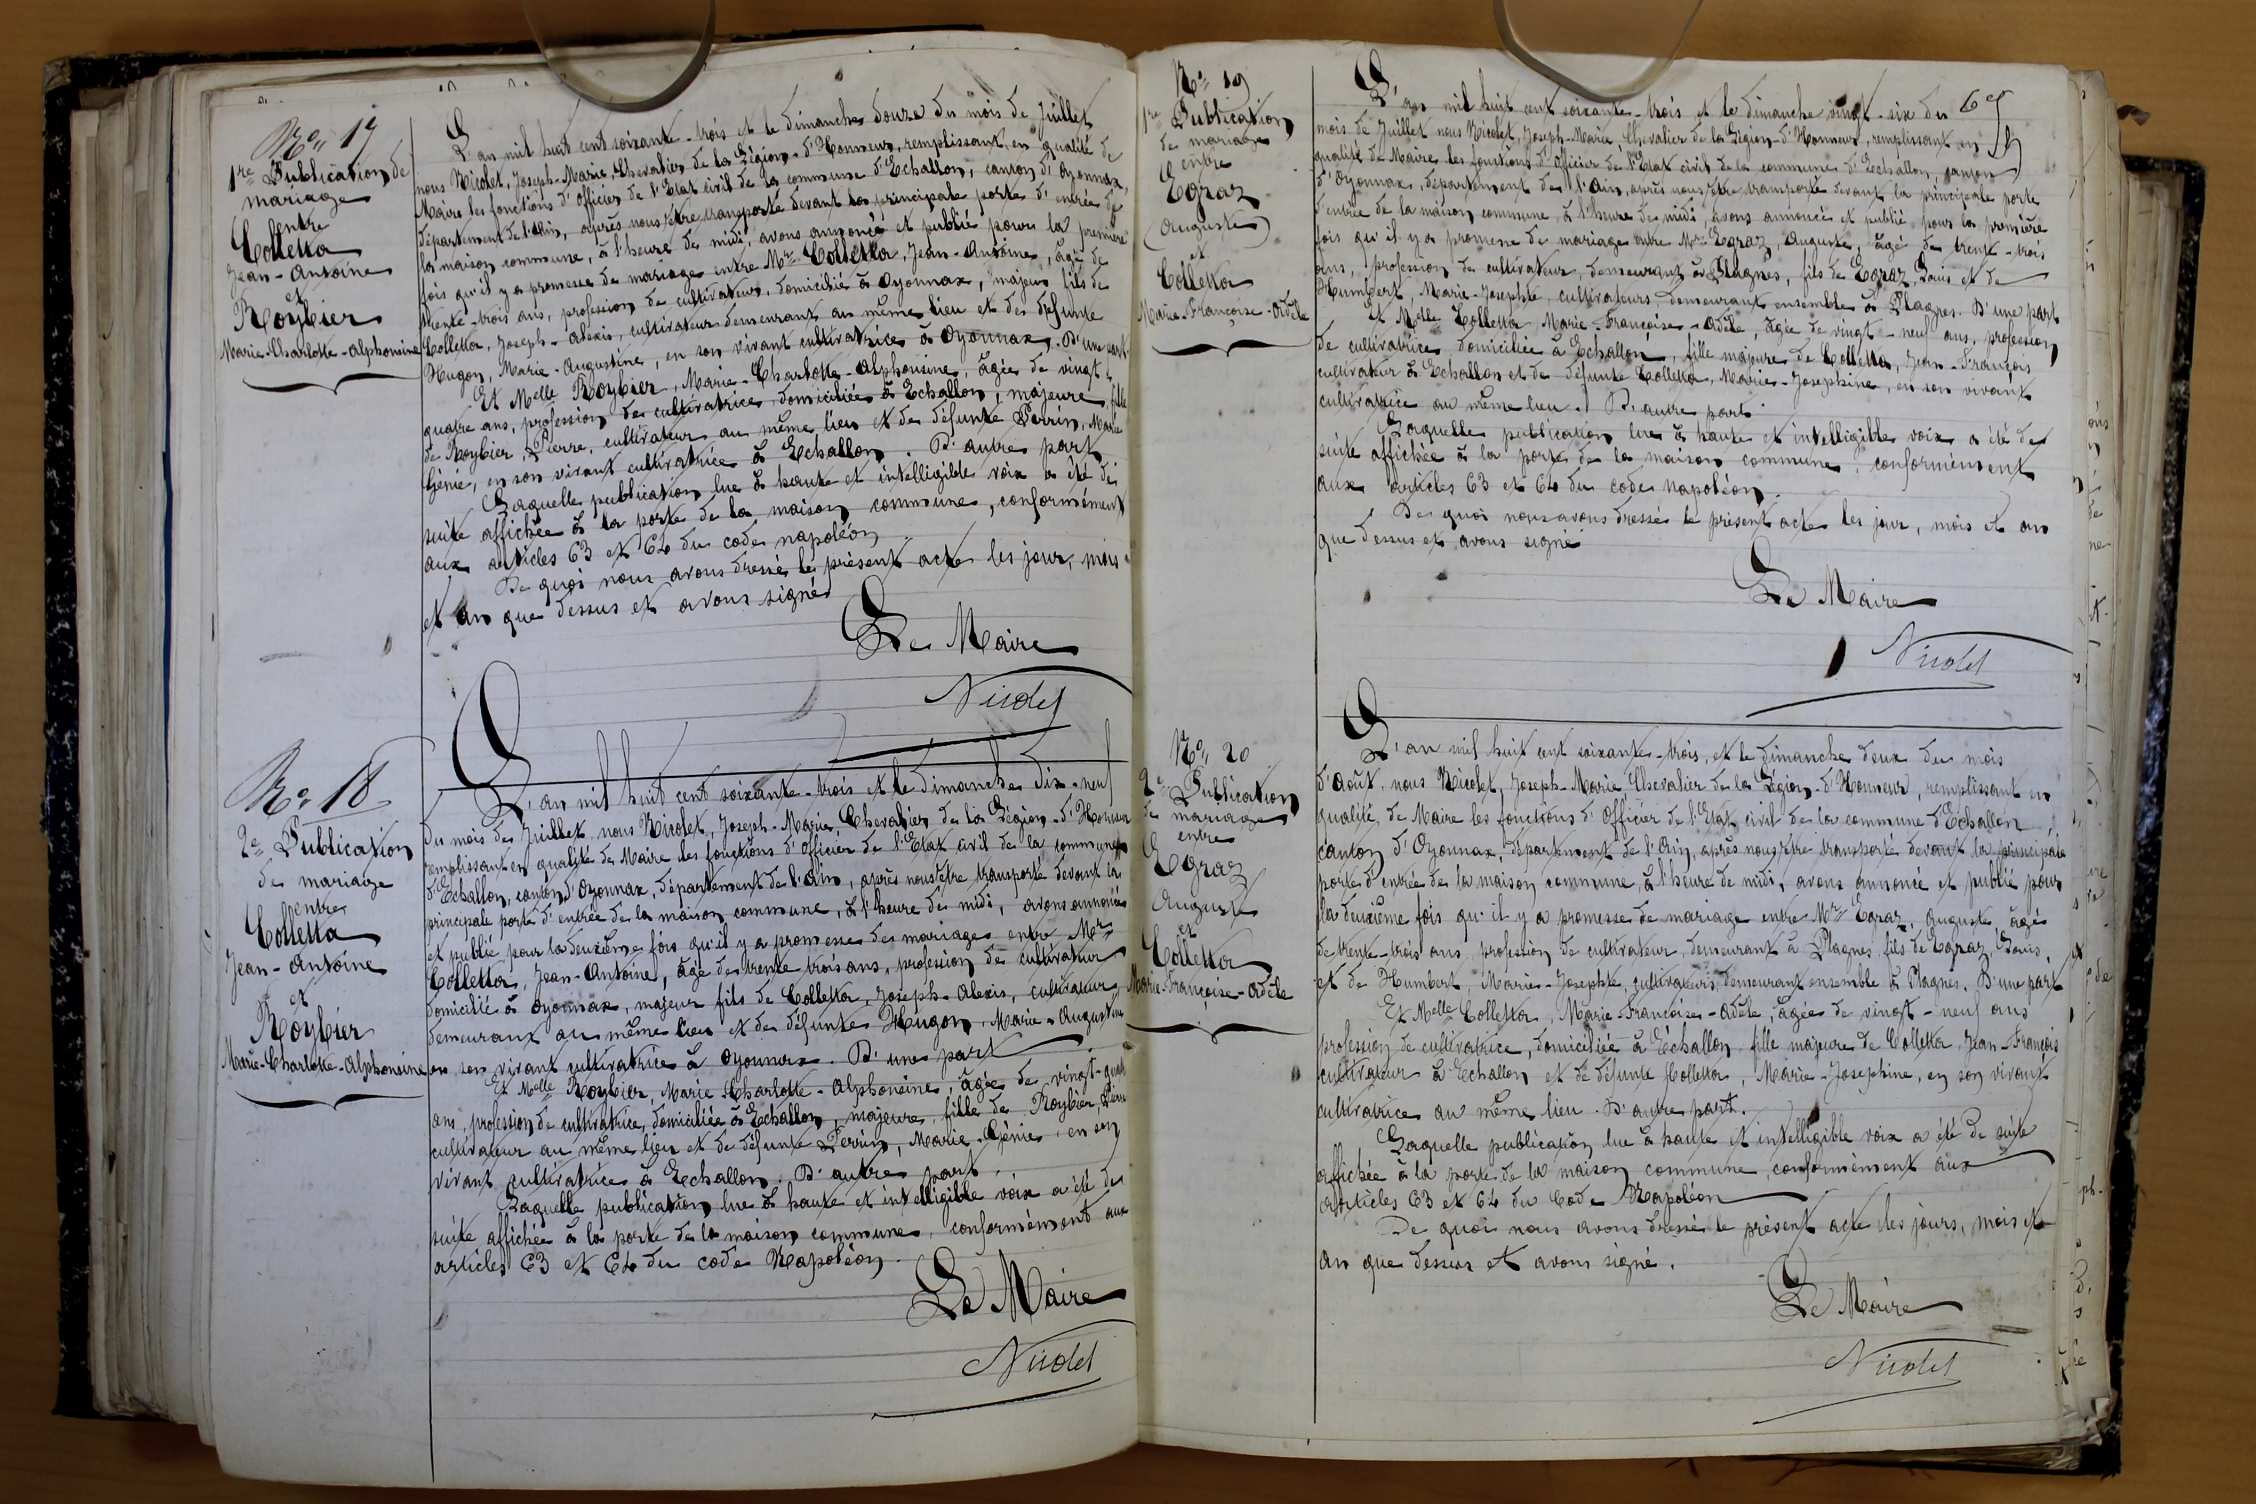 No 17
1re Publication de
mariage
entre
Colletta
Jean-Antoine
et
Roybier
Marie-Charlotte-Alphonsine
L'an mil huit cent soixante-trois et le dimanche douze du mois de Juillet
nous Nicolet, Joseph-Marie, Chevalier de la Légion-d'Honneur, remplissant en qualité de
Maire les fonctions d'Officier de l'Etat civil de la commune d'Echallon, canton d'Oyonnax,
département de l'Ain, après nous être transporté devant la principale porte d'entrée de
la maison commune, à l'heure de midi, avons annoncé et publié pour la première
fois qu'il y a promesse de mariage entre Mr Colletta, Jean-Antoine, âgé de
trente-trois ans, profession de cultivateur, domicilié à Oyonnax, majeur fils de
Colletta, Joseph-Alexis, cultivateur demeurant au même lieu et de défunte
Hugon, Marie-Augustine, en son vivant cultivatrice à Oyonnax. D'une part.
Et Melle Roybier, Marie-Charlotte-Alphonsine, âgée de vingt-
quatre ans, profession de cultivatrice, domiciliée à Echallon, majeure, fille
de Roybier, Pierre, cultivateur au même lieu et de défunte Perrin, Marie
Génie, en son vivant cultivatrice à Echallon. D'autre part
Laquelle publication lue à haute et intelligible voix a été de
suite affichée à la porte de la maison commune, conformément
aux articles 63 et 64 du code napoléon
De quoi nous avons dressé le présent acte les jour, mois
et an que dessus et avons signé
Le Maire
Nicolet
No 18
2e Publication
de mariage
entre
Colletta
Jean-Antoine
et
Roybier
Marie-Charlotte-Alphonsine
L'an mil huit cent soixante-trois et le dimanche dix-neuf
du mois de Juillet nous Nicolet, Joseph-Marie, Chevalier de la Légion-d'Honneur
remplissant en qualité de Maire les fonctions d'Officier de l'Etat civil de la commune
d'Echallon, canton d'Oyonnax, département de l'Ain, après nous être transporté devant la
principale porte d'entrée de la maison commune, à l'heure de midi, avons annoncé
et publié pour la deuxième fois qu'il y a promesse de mariage entre Mr
Colletta, Jean-Antoine, âgé de trente trois ans, profession de cultivateur
domicilié à Oyonnax, majeur fils de Colletta, Joseph-Alexis, cultivateur
demeurant au même lieu et de défunte Hugon, Marie-Augustine
en son vivant cultivatrice à Oyonnax. D'une part
Et Melle Roybier, Marie Charlotte-Alphonsine, âgée de vingt-quatre
ans, profession de cultivatrice, domiciliée à Echallon, majeure, fille de Roybier, Pierre
cultivateur au même lieu et de défunte Perrin, Marie Génie, en son
vivant cultivatrice à Echallon. D'autre part.
Laquelle publication lue à haute et intelligible voix a été de
suite affichée à la porte de la maison commune, conformément aux
articles 63 et 64 du code Napoléon.
Le Maire
Nicolet
No 19
1re Publication
de mariage
entre
Egraz
(Auguste)
et
Colletta
Marie-Françoise-Adèle
L'an mil huit cent soixante-trois et le dimanche vingt-six du
mois de Juillet nous Nicolet, Joseph-Marie, Chevalier de la Légion-d'Honneur, remplissant en
qualité de Maire les fonctions d'Officier de l'Etat civil de la commune d'Echallon, canton
d'Oyonnax, département de l'Ain, après nous être transporté devant la principale porte
d'entrée de la maison commune à l'heure de midi, avons annoncé et publié pour la première
fois qu'il y a promesse de mariage entre Mr Egraz, Auguste, âgé de trente-trois
ans, profession de cultivateur, demeurant à Plagnes, fils de Egraz, Louis et de
Humbert, Marie-Josephte, cultivateurs, demeurant ensemble à Plagnes. D'une part
Et Melle Colletta, Marie-Françoise-Adèle, âgée de vingt-neuf ans, profession
de cultivatrice domiciliée à Echallon, fille majeure de Colletta, Jean-François
cultivateur à Echallon et de défunte Colletta, Marie-Josephine, en son vivant
cultivatrice au même lieu. D'autre part.
Laquelle publication lue à haute et intelligible voix a été de
suite affichée à la porte de la maison commune, conformément
aux articles 63 et 64 du code napoléon.
De quoi nous avons dressé le présent acte les jour, mois et an
que dessus et avons signé
Le Maire
Nicolet
No 20
2e Publication
de mariage
entre
Egraz
Auguste
et
Colletta
Marie-Françoise-Adèle
L'an mil huit cent soixante-trois, et le dimanche deux du mois
d'Août, nous Nicolet, Joseph-Marie, Chevalier de la Légion-d'Honneur, remplissant en
qualité, de Maire les fonctions d'Officier de l'Etat civil de la commune d'Echallon,
canton d'Oyonnax, département de l'Ain, après nous être transporté devant la principale
porte d'entrée de la maison commune à l'heure de midi, avons annoncé et publié pour
la deuxième fois qu'il y a promesse de mariage entre Mr Egraz, Auguste, âgé
de trente-trois ans, profession de cultivateur, demeurant à Plagnes, fils de Egraz, Louis,
et de Humbert, Marie-Josephte, cultivateurs, demeurant ensemble à Plagnes. D'une part
Et Melle Colletta, Marie-Françoise-Adèle, âgée de vingt-neuf ans
profession de cultivatrice, domiciliée à Echallon fille majeure de Colletta, Jean-François
cultivateur à Echallon et de défunte Colletta, Marie-Josephine, en son vivant
cultivatrice au même lieu. D'autre part.
Laquelle publication lue à haute et intelligible voix a été de suite
affichée à la porte de la maison commune, conformément aux
articles 63 et 64 du Code Napoléon
De quoi nous avons dressé le présent acte les jours, mois et
an que dessus et avons signé.
Le Maire
Nicolet